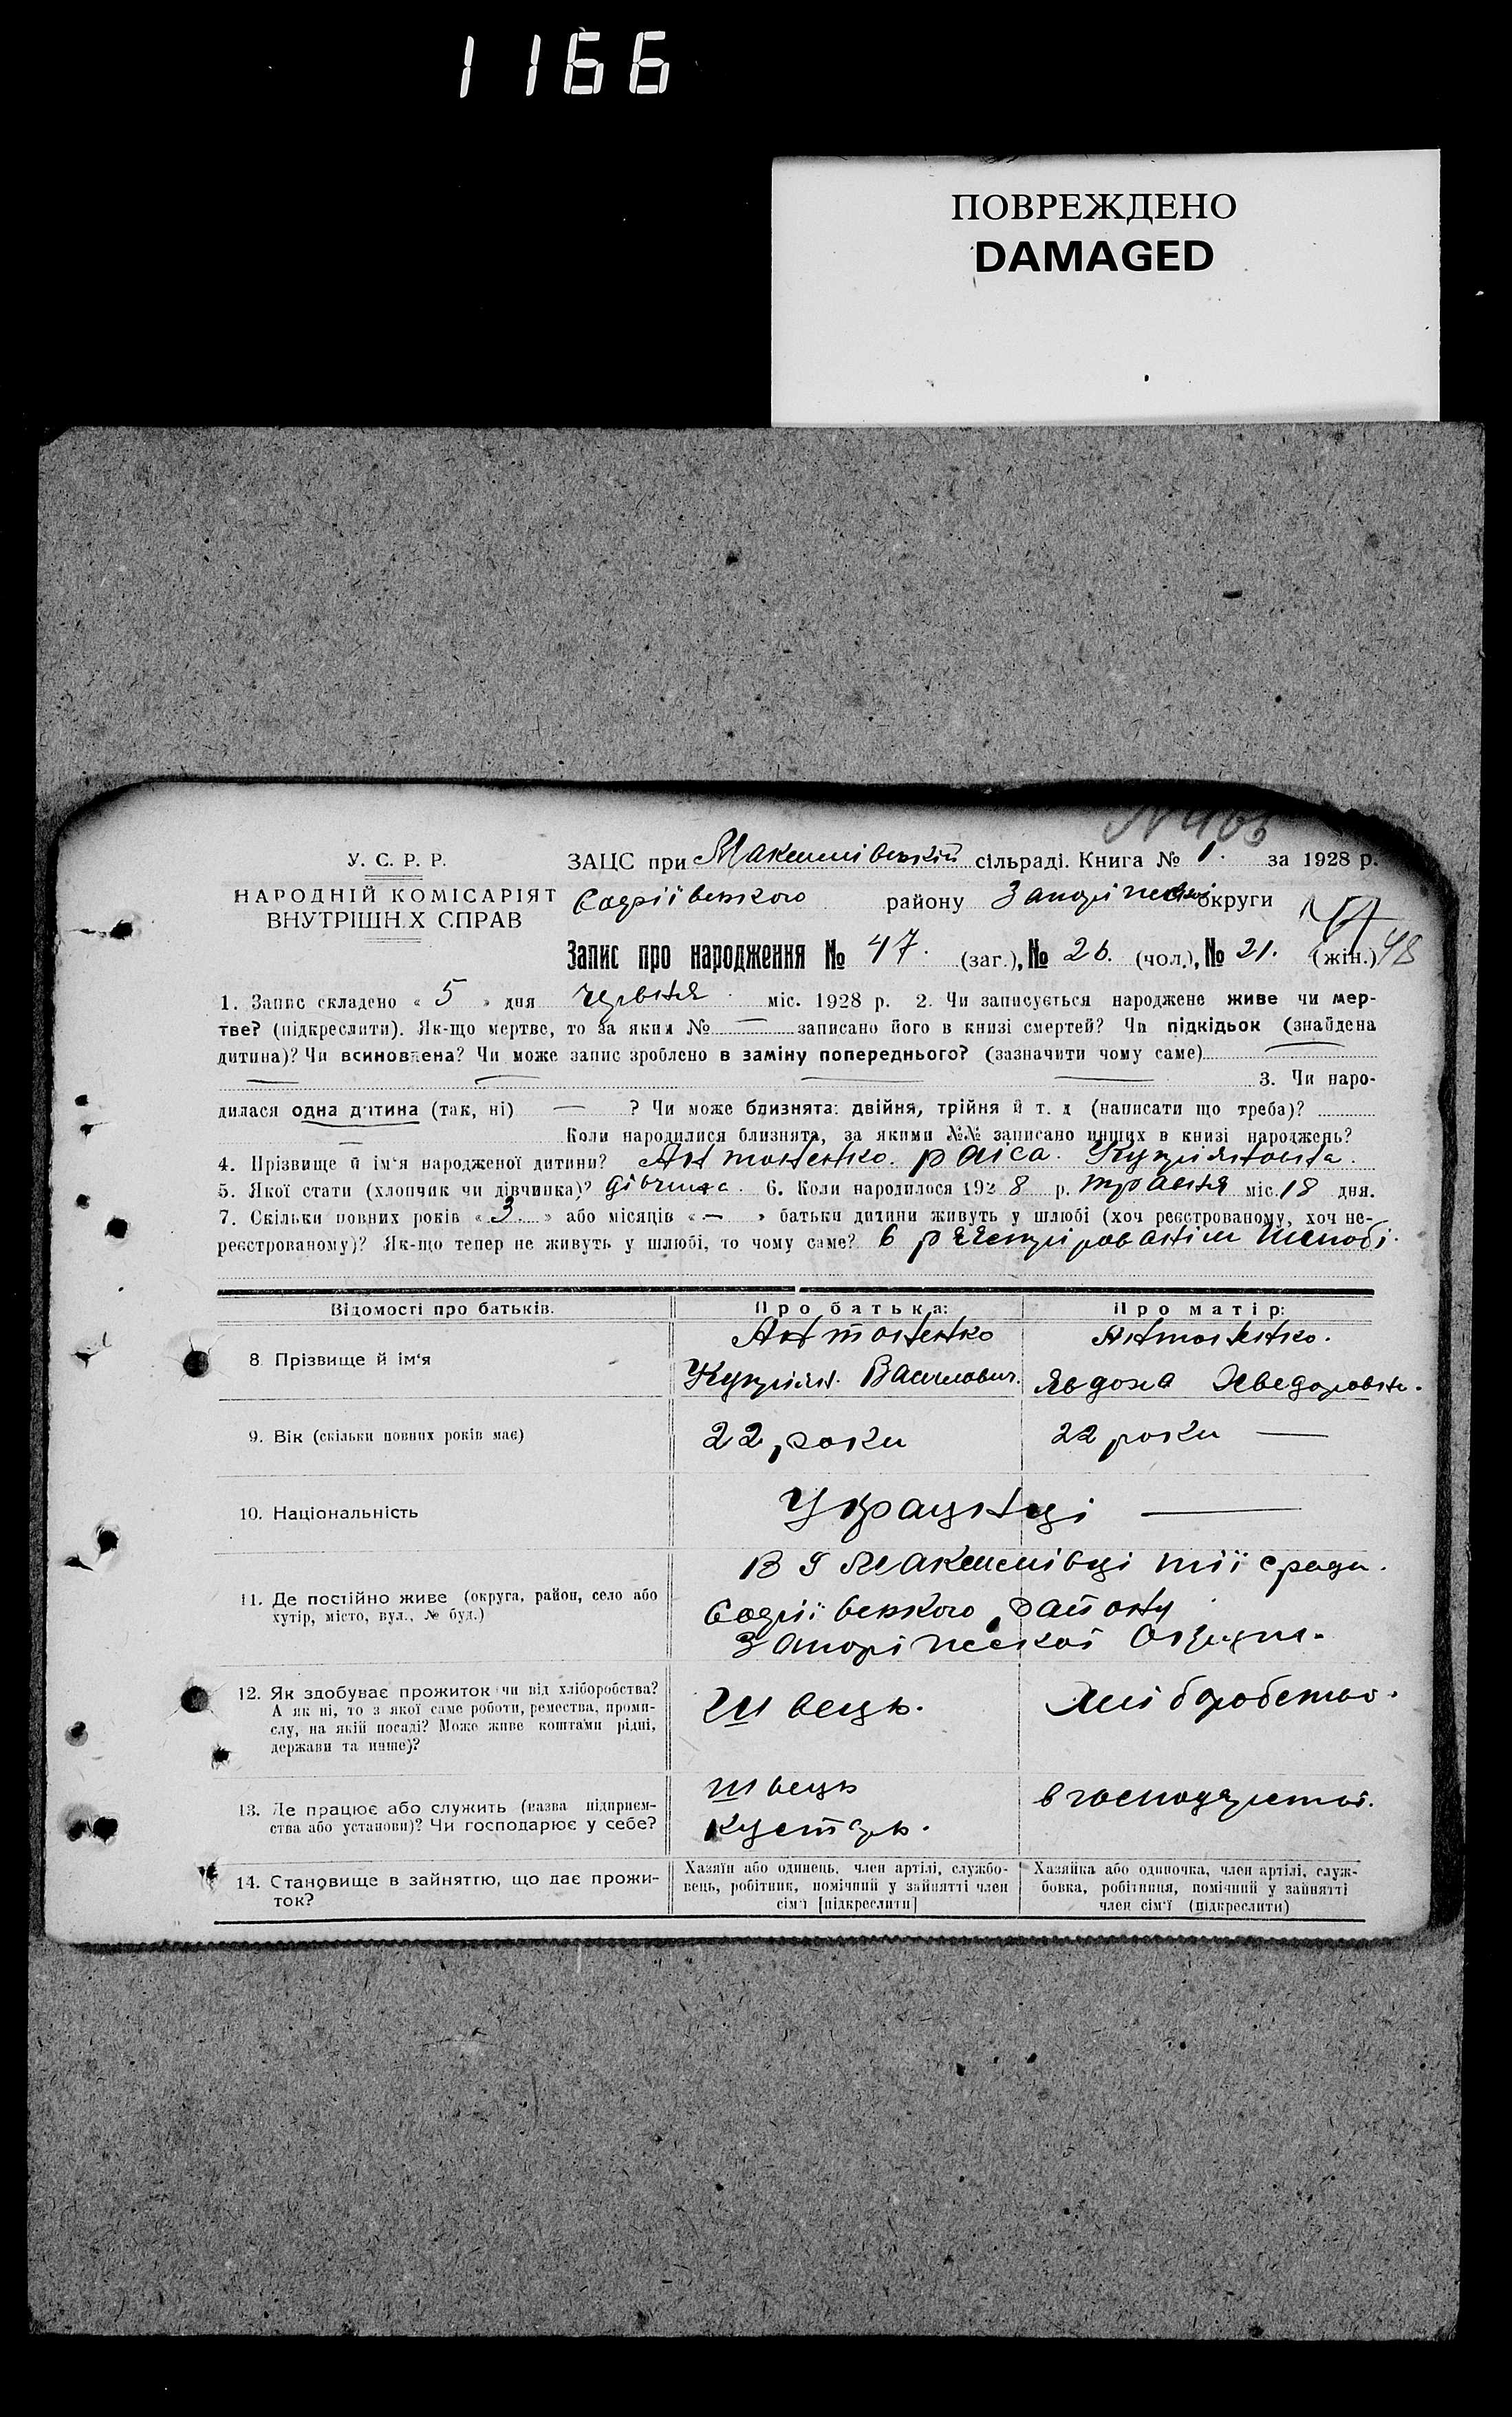 1166
ПОВРЕЖДЕНО
DAMAGED
У. С. Р. Р.
НАРОДНІЙ КОМІСАРІЯТ
ВНУТРІШНІХ СПРАВ
ЗАЦС при сільраді. Книга № 1. за 1928 р.
району округи
Запис про народження № 47. (заг.), № 26. (чол.), № 21. (жін.) 48
1. Запис складено « 5 » дня червня міс. 1928 р. 2. Чи записується народжене живе чи мер-
тве? (підкреслити). Як-що мертве, то за яким № — записано його в книзі смертей? Чи підкідьок (знайдена
дитина)? Чи всиновлена? Чи може запис зроблено в заміну попереднього? (зазначити чому саме) —
— — — — 3. Чи наро-
дилася одна дитина (так, ні) — ? Чи може близнята: двійня, трійня й т. д (написати що треба)?
— Коли народилися близнята, за якими №№ записано инших в книзі народжень?
4. Прізвище й ім'я народженої дитини? Антоненко раіса Купріяновна
5. Якої стати (хлопчик чи дівчинка)? дівчина 6. Коли народилося 1928 р. травня міс. 18 дня.
7. Скільки повних років « 3 » або місяців « — » батьки дитини живуть у шлюбі (хоч реєстрованому, хоч не-
реєстрованому)? Як-що тепер не живуть у шлюбі, то чому саме? в
Відомості про батьків. Про батька: Про матір:
8. Прізвище й ім'я
Антоненко Антоненко.
Купріян Василович. Явдоха
9. Вік (скільки повних років має) 22 роки 22 роки —
10. Національність Украунці —
11. Де постійно живе (округа, район, село або
хутір, місто, вул., № буд.)
району
12. Як здобуває прожиток чи від хліборобства?
А як ні, то з якої саме роботи, ремества, проми-
слу, на якій посаді? Може живе коштами рідні,
держави та инше)?
швець. хліборобство.
13. Де працює або служить (назва підприєм-
ства або установи)? Чи господарює у себе?
швець
кустарь.
14. Становище в зайняттю, що дає прожи-
ток?
Хазяїн або одинець, член артілі, службо-
вець, робітник, помічний у зайнятті член
сім'ї [підкреслити]
Хазяйка або одиночка, член артілі, служ-
бовка, робітниця, помічний у зайнятті
член сім'ї (підкреслити)